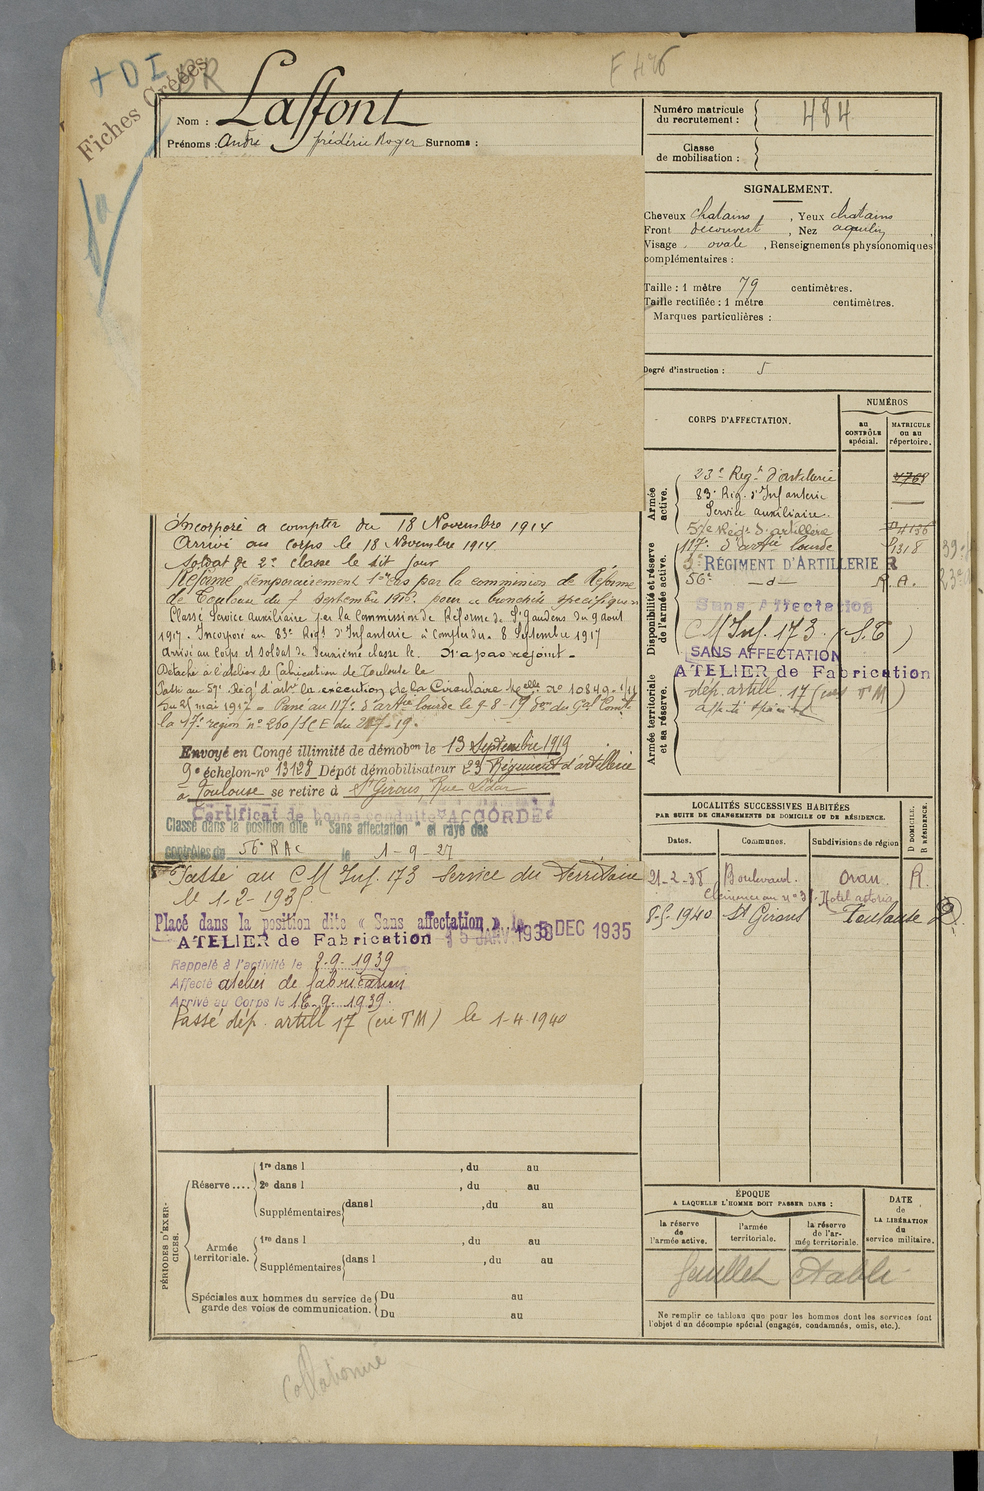 + D I
BR
Fiches Créées
F 426
Nom : Laffont
Prénoms : André frédéric Roger Surnoms :
Numéro matricule
du recrutement : 484
Classe
de mobilisation :
SIGNALEMENT.
Cheveux chatains , Yeux chatains
Front découvert , Nez aquilin ,
Visage ovale , Renseignements physionomiques
complémentaires :
Taille : 1 mètre 79 centimètres.
Taille rectifiée : 1 mètre centimètres.
Marques particulières :
Degré d'instruction : 5
CORPS D'AFFECTATION.
NUMÉROS
au
CONTRÔLE
spécial.
MATRICULE
ou au
répertoire.
Armée
active.
23e Regt d'artillerie
83e Rég. d'Infanterie
Service auxiliaire.
57e Régt d'artillerie
Disponibilité et réserve
de l'armée active.
117e d'artie lourde 1318
RÉGIMENT D'ARTILLERIE
56e — d — R.A.
Sans Affectation
CM Inf. 173 (S.T)
SANS AFFECTATION
ATELIER de Fabrication
Armée territoriale
et sa réserve.
dép. artill. 17 (ex T M)
Incorporé à compter du 18 Novembre 1914
Arrivé au Corps le 18 Novembre 1914
Soldat de 2e classe le dit jour
Réformé temporairement par la commission de Réforme
de Toulouse du 7 septembre 1916. pour bronchite spécifique
Classé Service auxiliaire par la Commission de Réforme de St Gaudens du 9 aout
1917. Incorporé au 83e Regt d'Infanterie à compter du 8 Septembre 1917
Arrivé au corps et soldat de deuxième classe le. N'a pas rejoint -
Détaché à l'atelier de fabrication de Toulouse le
Passé au 57e Rég. d'artie la exécution de la Circulaire Melle No 10849
du 25 mai 1917 = Passé au 117e d'artie lourde le 9-8-19 du Gal Comt
la 17e région no 260/SCE du
Envoyé en Congé illimité de démobon le 13 Septembre 1919
9e échelon-no 13128 Dépôt démobilisateur 23 Régiment d'artillerie
à Toulouse se retire à St Girons, Rue
Certificat de bonne conduite "ACCORDÉ"
Classé dans la position dite "Sans affectation" et rayé des
contrôles du 56e RAC le 1-9-27
Passé au C M Inf. 173 Service du Territoire
le 1-2-193
Placé dans la position dite « Sans affectation » le 5 DEC 1935
ATELIER de Fabrication 15 JANV 1938
Rappelé à l'activité le 2-9-1939
Affecté atelier de fabrication
Arrivé au Corps le 16-9-1939.
Passé dép. artill 17 (ex T M) le 1-4-1940
LOCALITÉS SUCCESSIVES HABITÉES
PAR SUITE DE CHANGEMENTS DE DOMICILE OU DE RÉSIDENCE.
D DOMICILE.
R RÉSIDENCE.
Dates.
Communes.
Subdivisions de région
21-2-38 Boulevard. Oran R.
Clemenceau no 31. Hotel astoria
8-5-1940 St Girons Toulouse
PÉRIODES D'EXER-
CICES.
Réserve ....
1re dans l , du au
2e dans l , du au
Supplémentaires dans l , du au
Armée
territoriale.
1re dans l , du au
Supplémentaires dans l , du au
Spéciales aux hommes du service de
garde des voies de communication.
Du au
Du au
ÉPOQUE
A LAQUELLE L'HOMME DOIT PASSER DANS :
la réserve
de
l'armée active.
l'armée
territoriale.
la réserve
de l'ar-
mée territoriale.
DATE
de
LA LIBÉRATION
du
service militaire.
feuillet établi
Ne remplir ce tableau que pour les hommes dont les services font
l'objet d'un décompte spécial (engagés, condamnés, omis, etc.).
Collationné